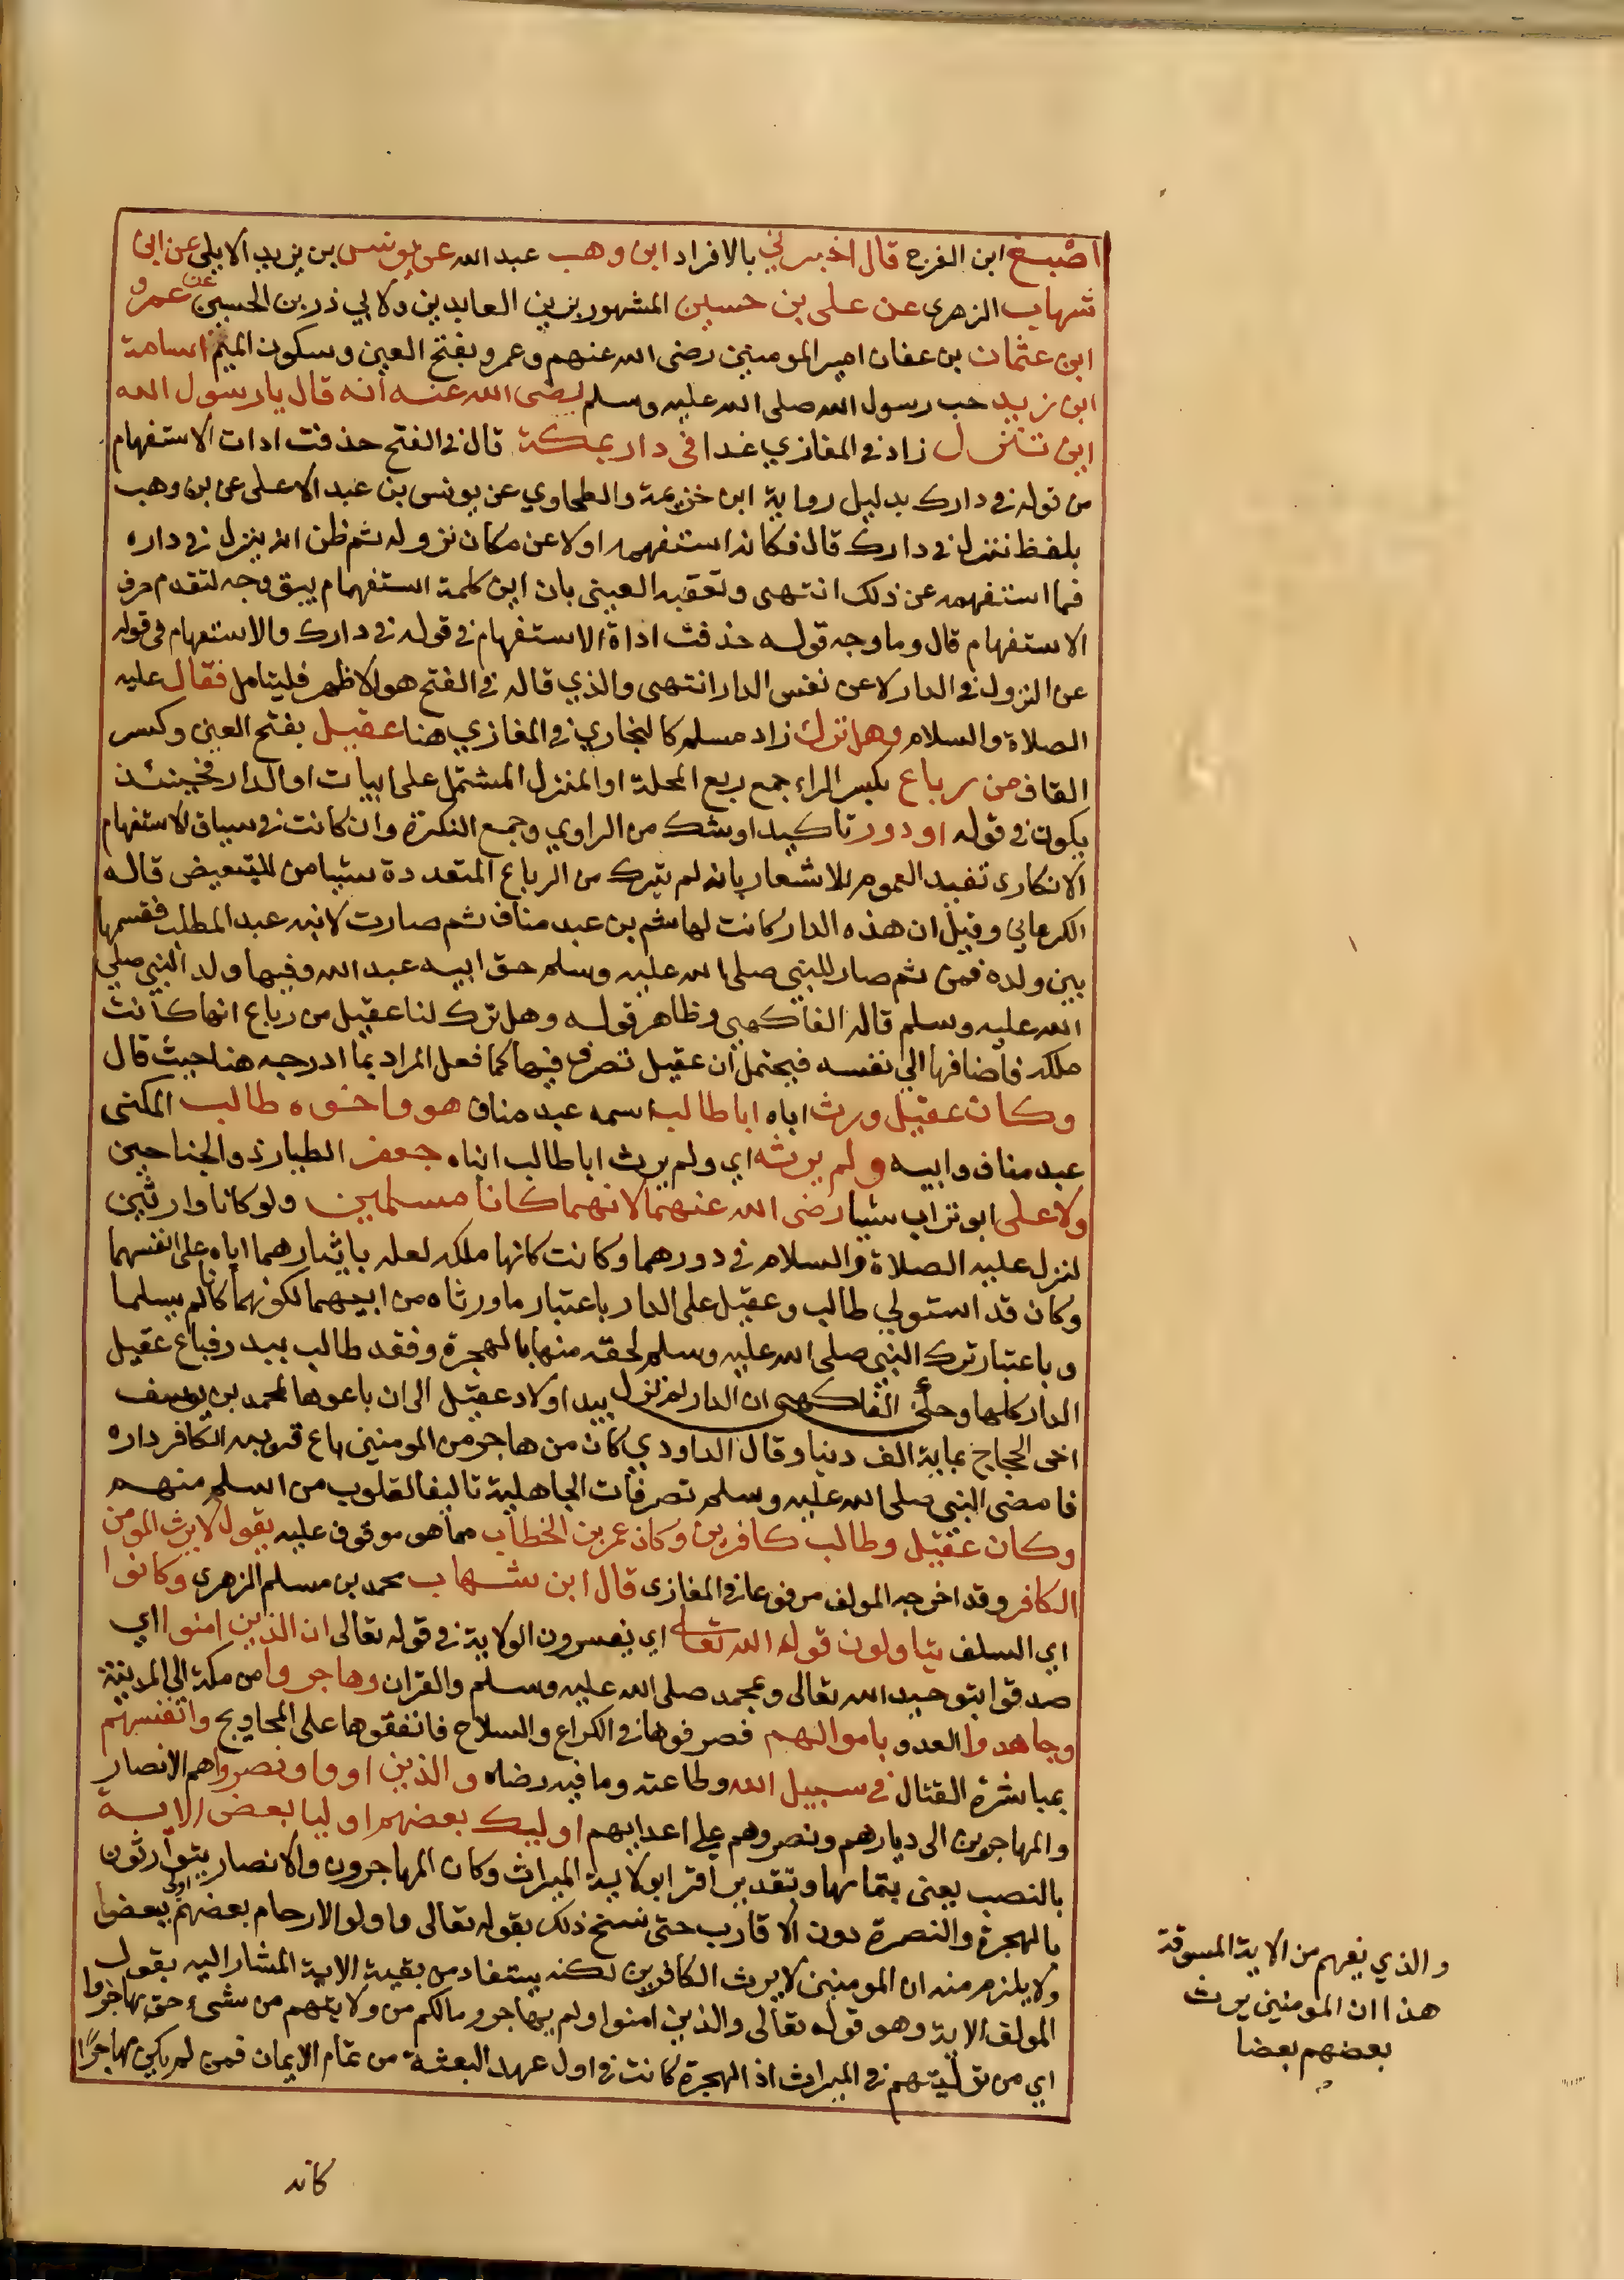 اصبغ ابن الفرج قال اخبرني بالافراد ابن وهب عبد الله عن يونس بن يزيد الايلي عن ابن
شهاب الزهري عن علي بن حسين المشهور بزين العابدين ولابي ذر بن الحسين عن عمرو
ابن عثمان بن عفان امير المومنين رضى الله عنهم وعمرو بفتح العين وسكون الميم اسامة
ابن زيد حب رسول الله صلى الله عليه وسلم رضى الله عنه انه قال يا رسول الله
اين تنزل زاد في المغازي غدا في دارك بمكة قال في الفتح حذفت ادات الاستفهام
من قوله في دارك بدليل رواية ابن خزيمة والطحاوي عن يونس بن عبد الاعلى عن بن وهب
بلفظ تنزل في دارك قال فكانه استفهمه اولا عن مكان نزوله ثم ظن انه ينزل في داره
فما استفهمه عن ذلك انتهى وتعقبه العيني بان اين كلمة استفهام يبق وجه لتقدم حرف
الاستفهام قال وما وجه قوله حذفت اداة الاستفهام في قوله في دارك والاستفهام في قوله
عن النزول في الدار لا عن نفس الدار انتهى والذي قاله في الفتح هو الاظهر فليتامل فقال عليه
الصلاة والسلام وهل ترك زاد مسلم كالبخاري في المغازي هنا عقيل بفتح العين وكسر
القاف من رباع بكسر الراء جمع ربع المحلة او المنزل المشتمل على ابيات او الدار فحينئذ
يكون في قوله او دور تاكيد او شك من الراوي وجمع النكرة وان كانت في سياق الاستفهام
الانكارى تفيد العموم للاشعار بانه لم يترك من الرباع المتعددة شيا من للتبعيض قاله
الكرماني وقيل ان هذه الدار كانت لهاشم بن عبد مناف ثم صارت لابنه عبد المطلب فقسمها
بين ولده فمن ثم صار للنبي صلى الله عليه وسلم حق ابيه عبد الله وفيها ولد النبي صلى
الله عليه وسلم قاله الفاكهي وظاهر قوله وهل ترك لنا عقيل من رباع انها كانت
ملكه فاضافها الى نفسه فيحتمل ان عقيل تصرف فيها كما فعل المراد بما ادرجه هنا حيث قال
وكان عقيل ورث اباه ابا طالب اسمه عبد مناف هو واخوه طالب المكنى
عبد مناف وابيه ولم يرثه اي ولم يرث ابا طالب ابناه جعفر الطيار ذو الجناحين
ولا على ابو تراب شيا رضى الله عنهما لانهما كانا مسلمين ولو كانا وارثين
لنزل عليه الصلاة والسلام في دورهما وكانت كانها ملكه لعله بايثارهما اياه على انفسهما
وكان قد استولي طالب وعقيل على الدار باعتبار ما ورثاه من ابيهما لكونهما كانا لم يسلما
وباعتبار ترك النبي صلى الله عليه وسلم لحقه منها بالهجرة وفقد طالب ببدر فباع عقيل
الدار كلها وحكى الفاكهي ان الدار لم تزل بيد اولاد عقيل الى ان باعوها لمحمد بن يوسف
اخى الحجاج بماية الف دينا وقال الداودي كان من هاجر من المومنين باع قريبه الكافر داره
فامضى النبي صلى الله عليه وسلم تصرفات الجاهلية تاليفا لقلوب من اسلم منهم
وكان عقيل وطالب كافرين وكان عمر بن الخطاب مما هو موقوف عليه يقول لا يرث المومن
الكافر وقد اخرجه المولف مرفوعا في المغازى قال ابن شهاب محمد بن مسلم الزهرى وكانوا
اي السلف يتاولون قوله الله تعالى اي يفسرون الولاية في قوله تعالى ان الذين امنوا اي
صدقوا بتوحيد الله تعالى وبمحمد صلى الله عليه وسلم والقران وهاجروا من مكة الى المدينة
وجاهدوا العدو باموالهم فصرفوها في الكراع والسلاح فانفقوها على المحاويج وانفسهم
بمباشرة القتال في سبيل الله وطاعته وما فيه رضاه والذين اووا ونصروا هم الانصار
والمهاجرون الى ديارهم ونصروهم على اعدايهم اوليك بعضهم اوليا بعض الاية
بالنصب يعنى بتمامها وتقدير اقرا بولاية الميراث وكان المهاجرون والانصار يتوارثون
بالهجرة والنصرة دون الاقارب حتى نسخ ذلك بقوله تعالى واولوا الارحام بعضهم اولى ببعض
ولا يلزم منه ان المومنين لا يرث الكافرين لكنه يستفاد من بقية الاية المشار اليه بقول
المولف الاية وهو قوله تعالى والذين امنوا ولم يهاجروا مالكم من ولايتهم من شىء حتى يهاجروا
اي من توليتهم في الميراث اذ الهجرة كانت في اول عهد البعثة من تمام الايمان فمن لم يكن مهاجرًا
كانه
والذي يفهم من الاية المسوقة
هذا ان المومنين يرث
بعضهم بعضا